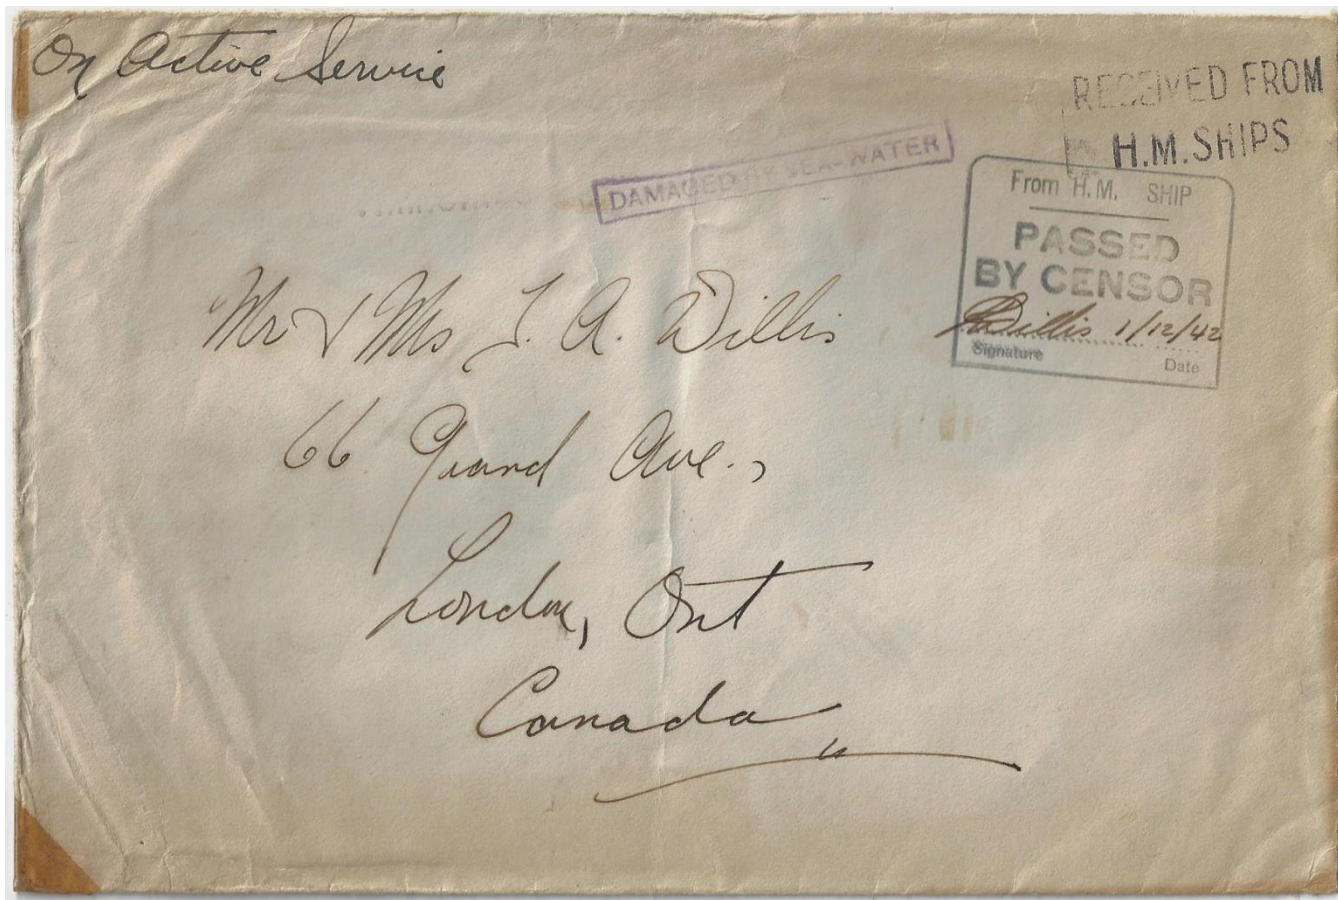 On Active Service
RECEIVED FROM
H.M. SHIPS
DAMAGED BY SEA-WATER
From H.M. SHIP
PASSED
BY CENSOR
Willis 1/12/42
Signature
Date
Mr & Mrs J. A. Willis
66 Grand Ave.,
London, Ont
Canada